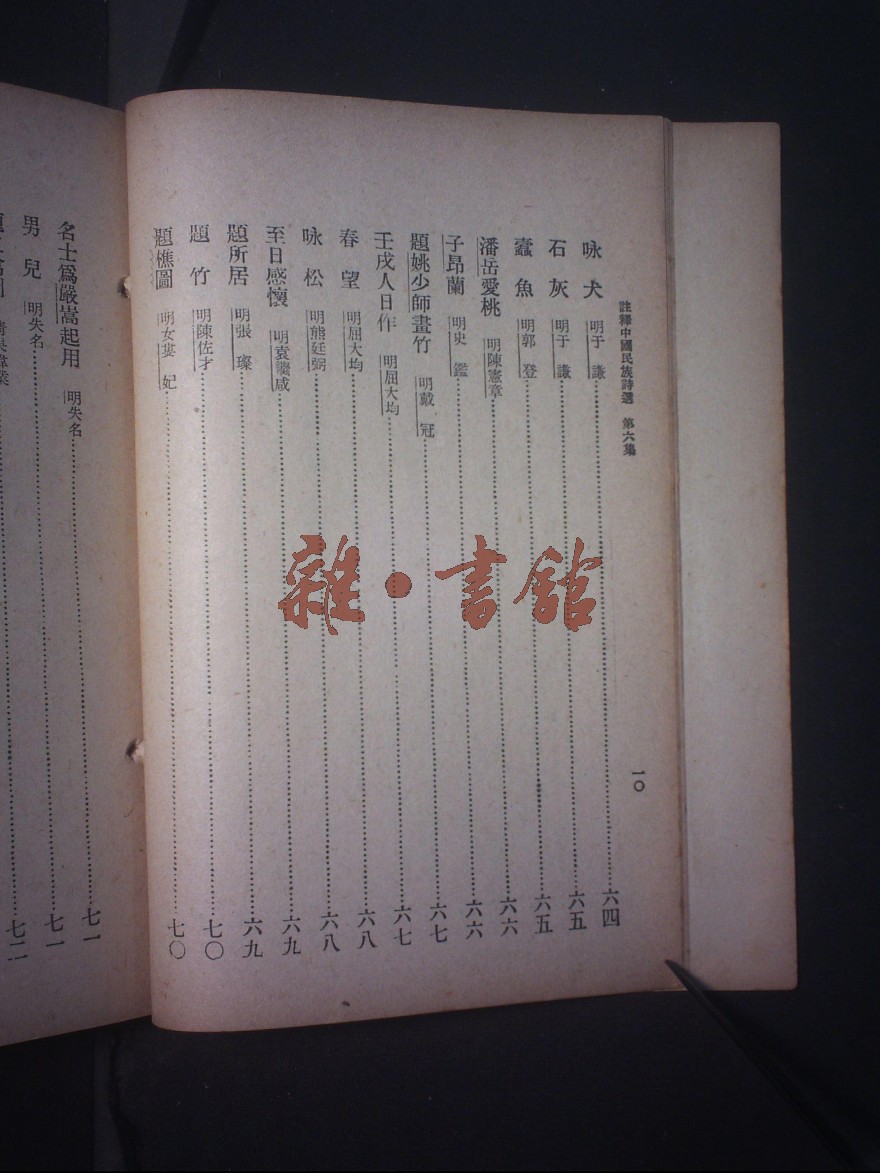 註釋中國民族詩選 第六集
一〇
咏犬 明于謙 六四
石灰 明于謙 六五
蠹魚 明郭登 六五
潘岳愛桃 明陳憲章 六六
子昂蘭 明史鑑 六六
題姚少師畫竹 明戴冠 六七
壬戌人日作 明屈大均 六七
春望 明屈大均 六八
咏松 明熊廷弼 六八
至日感懷 明袁繼咸 六九
題所居 明張璨 六九
題竹 明陳佐才 七〇
題樵圖 明女婁妃 七〇
名士爲嚴嵩起用 明失名 七一
男兒 明失名 七一
七二
雜·書館